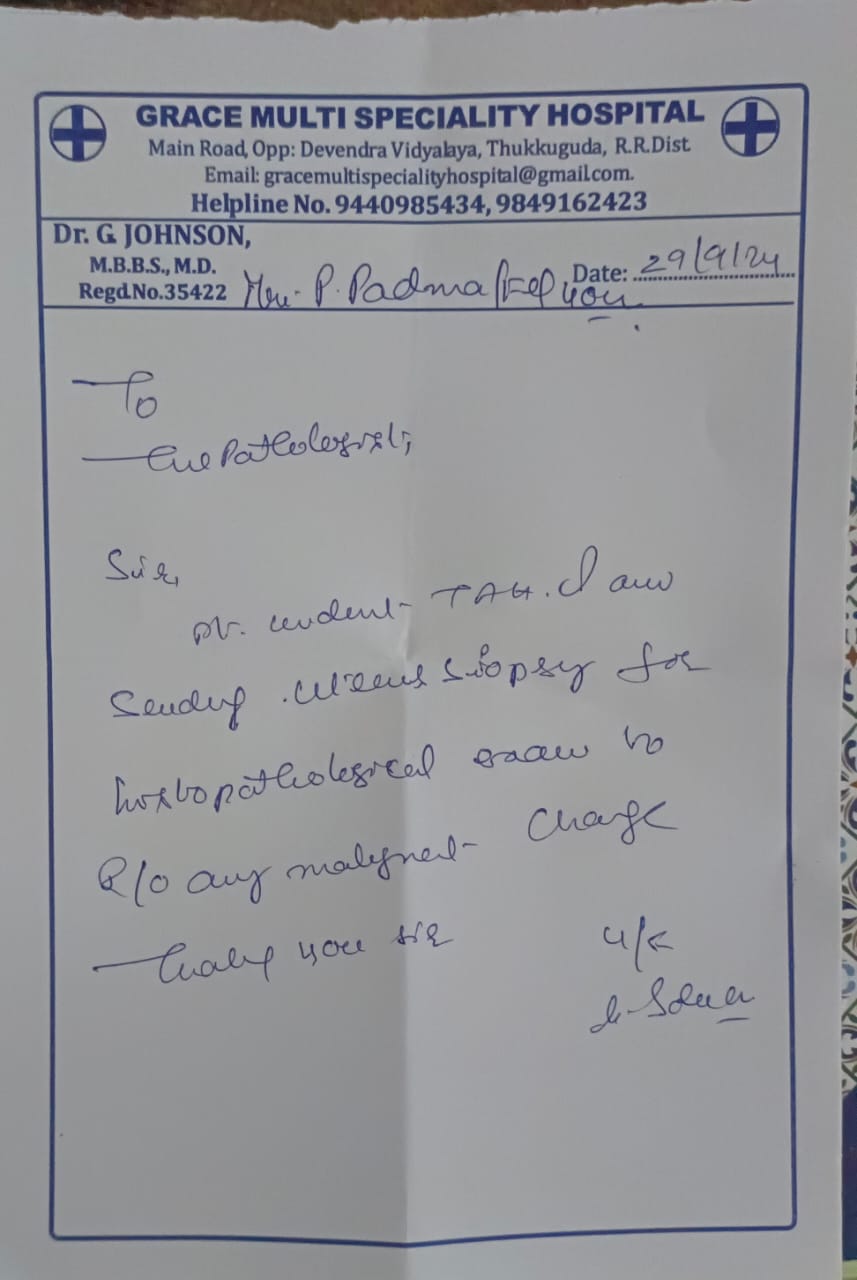 GRACE MULTI SPECIALITY HOSPITAL
Main Road, Opp: Devendra Vidyalaya, Thukkuguda, R.R.Dist.
Email: gracemultispecialityhospital@gmail.com.
Helpline No. 9440985434, 9849162423
Dr. G. JOHNSON,
M.B.B.S., M.D.
Regd.No.35422
Date: 29/9/24
P. Padma
To
the Pathologist,
Sir,
pt. TAH. I am
sending uterus biopsy for
histopathological exam to
R/o any malignent change
thank you sir